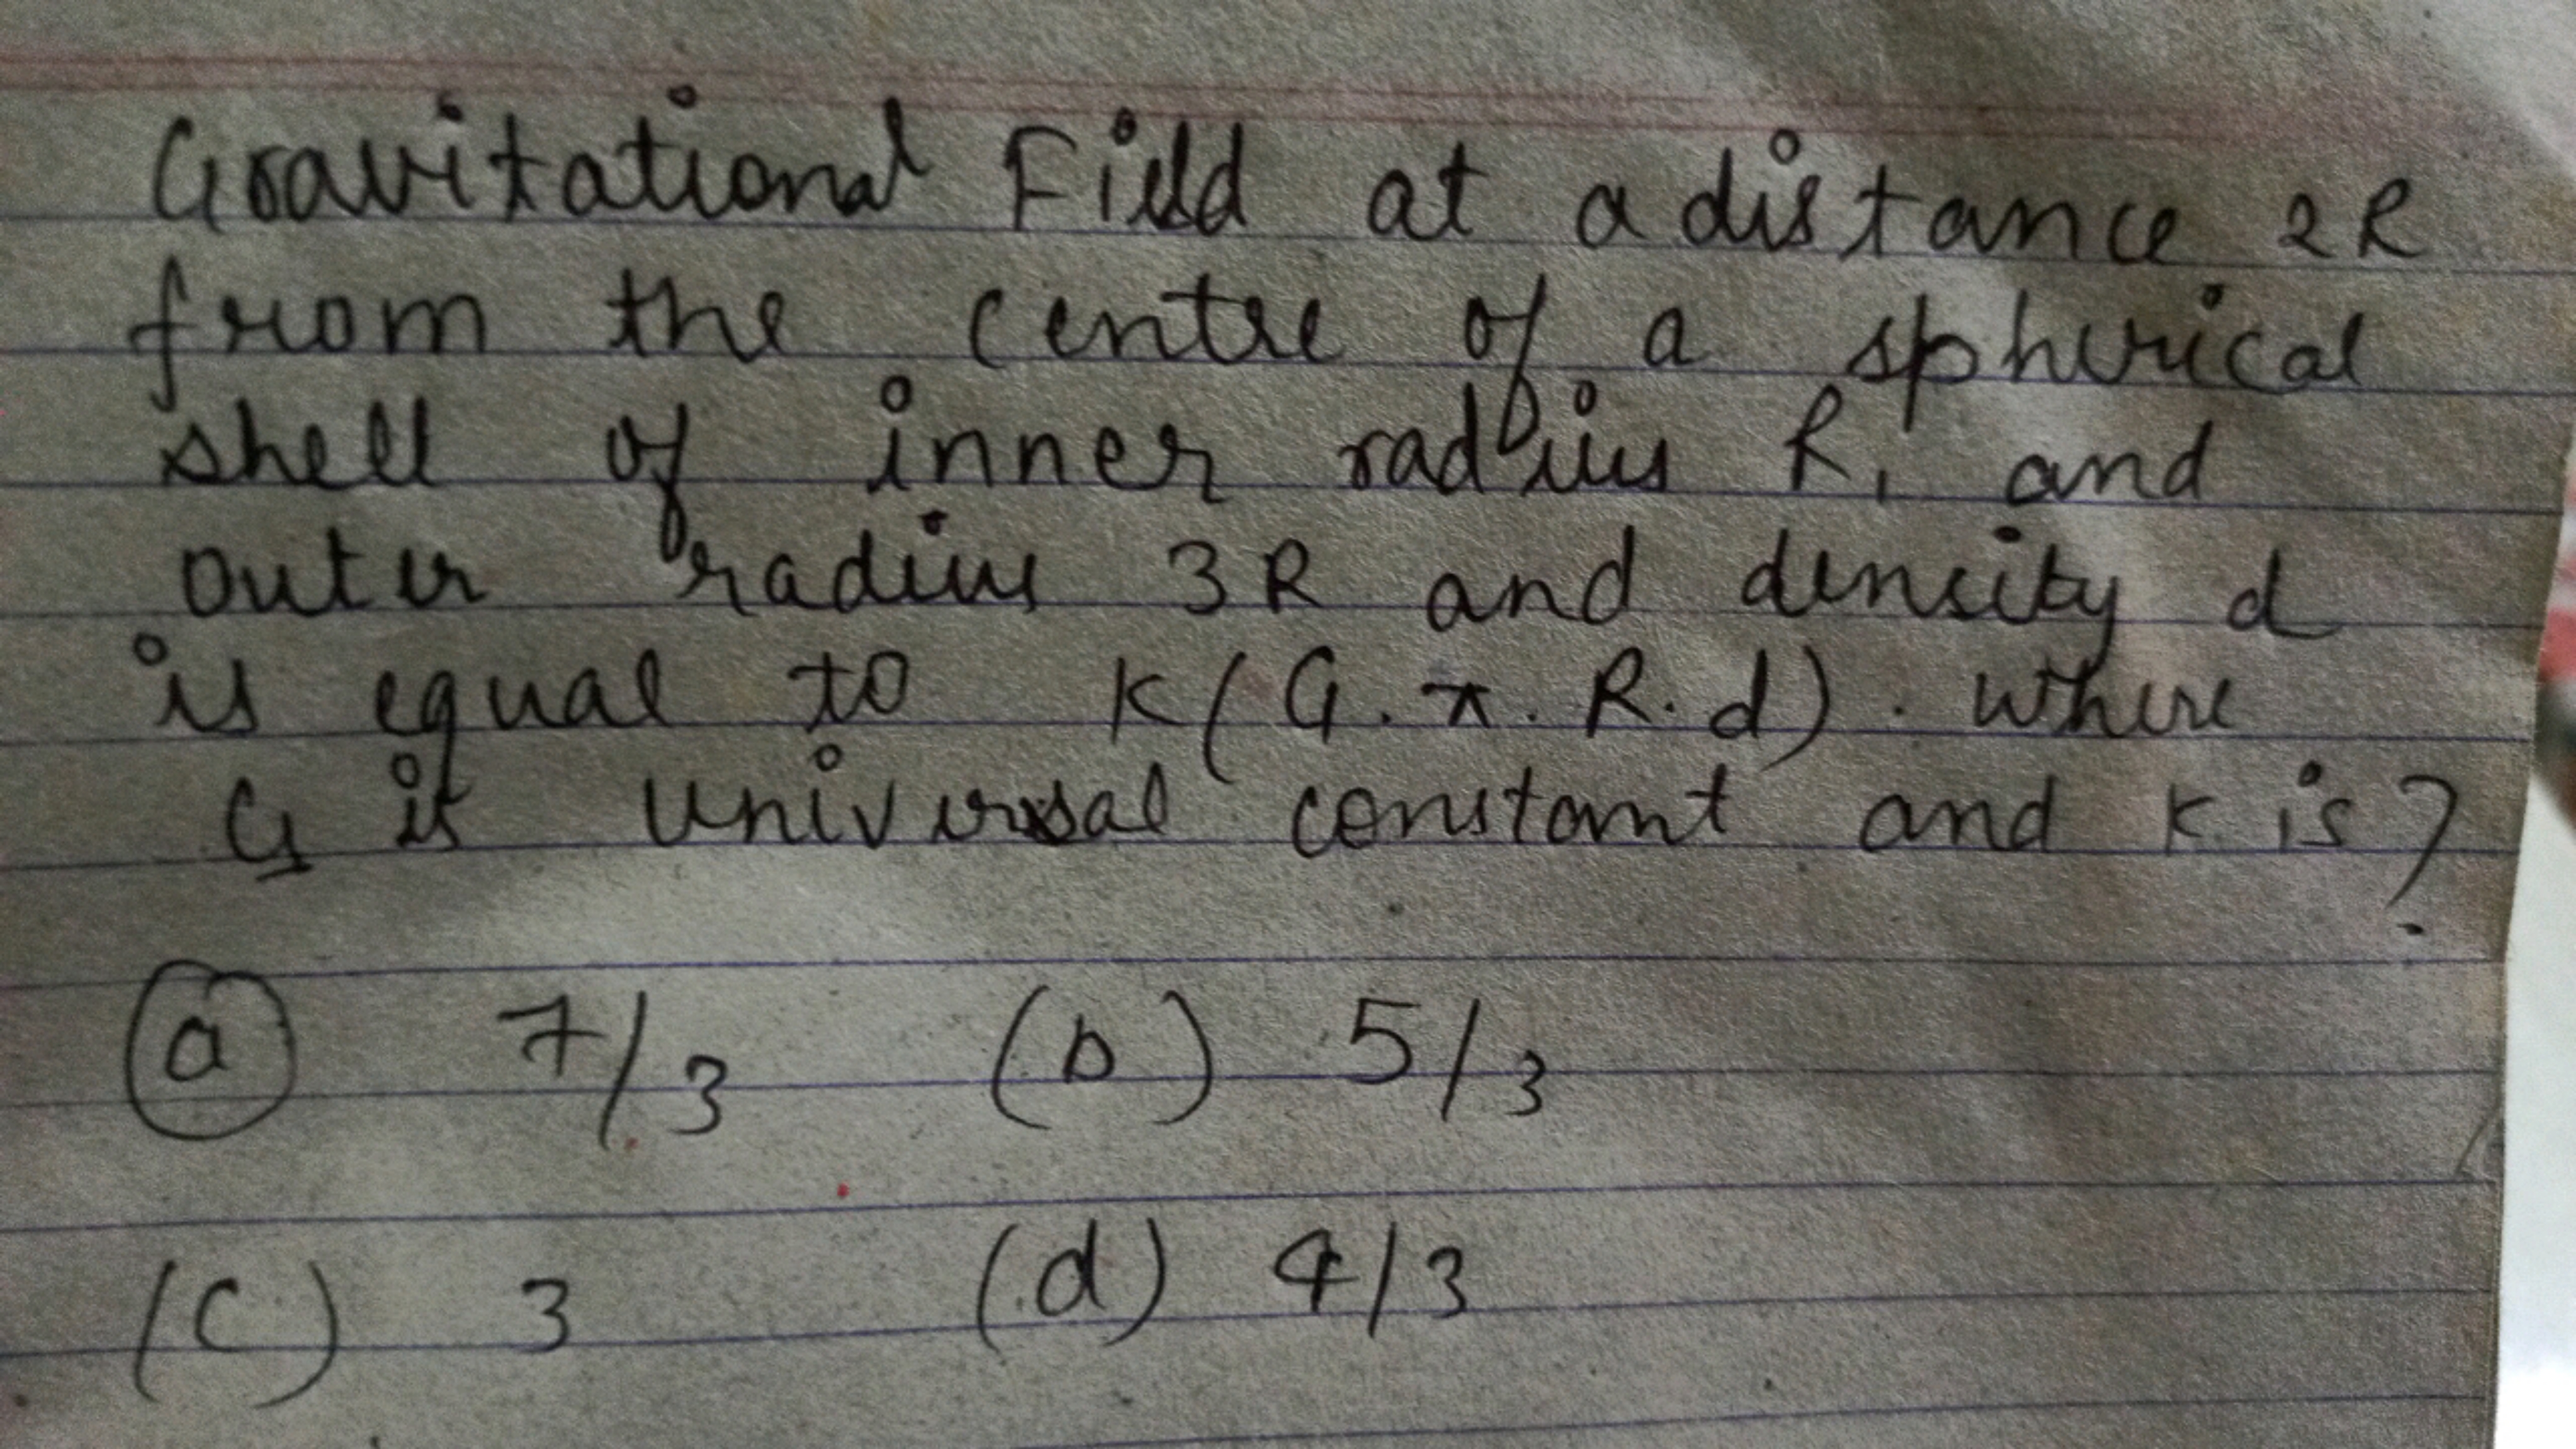 Gravitational Field at a distance 2R
from the centre of a spherical
shell of inner radius R, and
outer radius 3R and density d
is equal to K(G.π.R.d). Where
G is universal constant and K is?
(a) 7/3 (b) 5/3
(c) 3 (d) 4/3